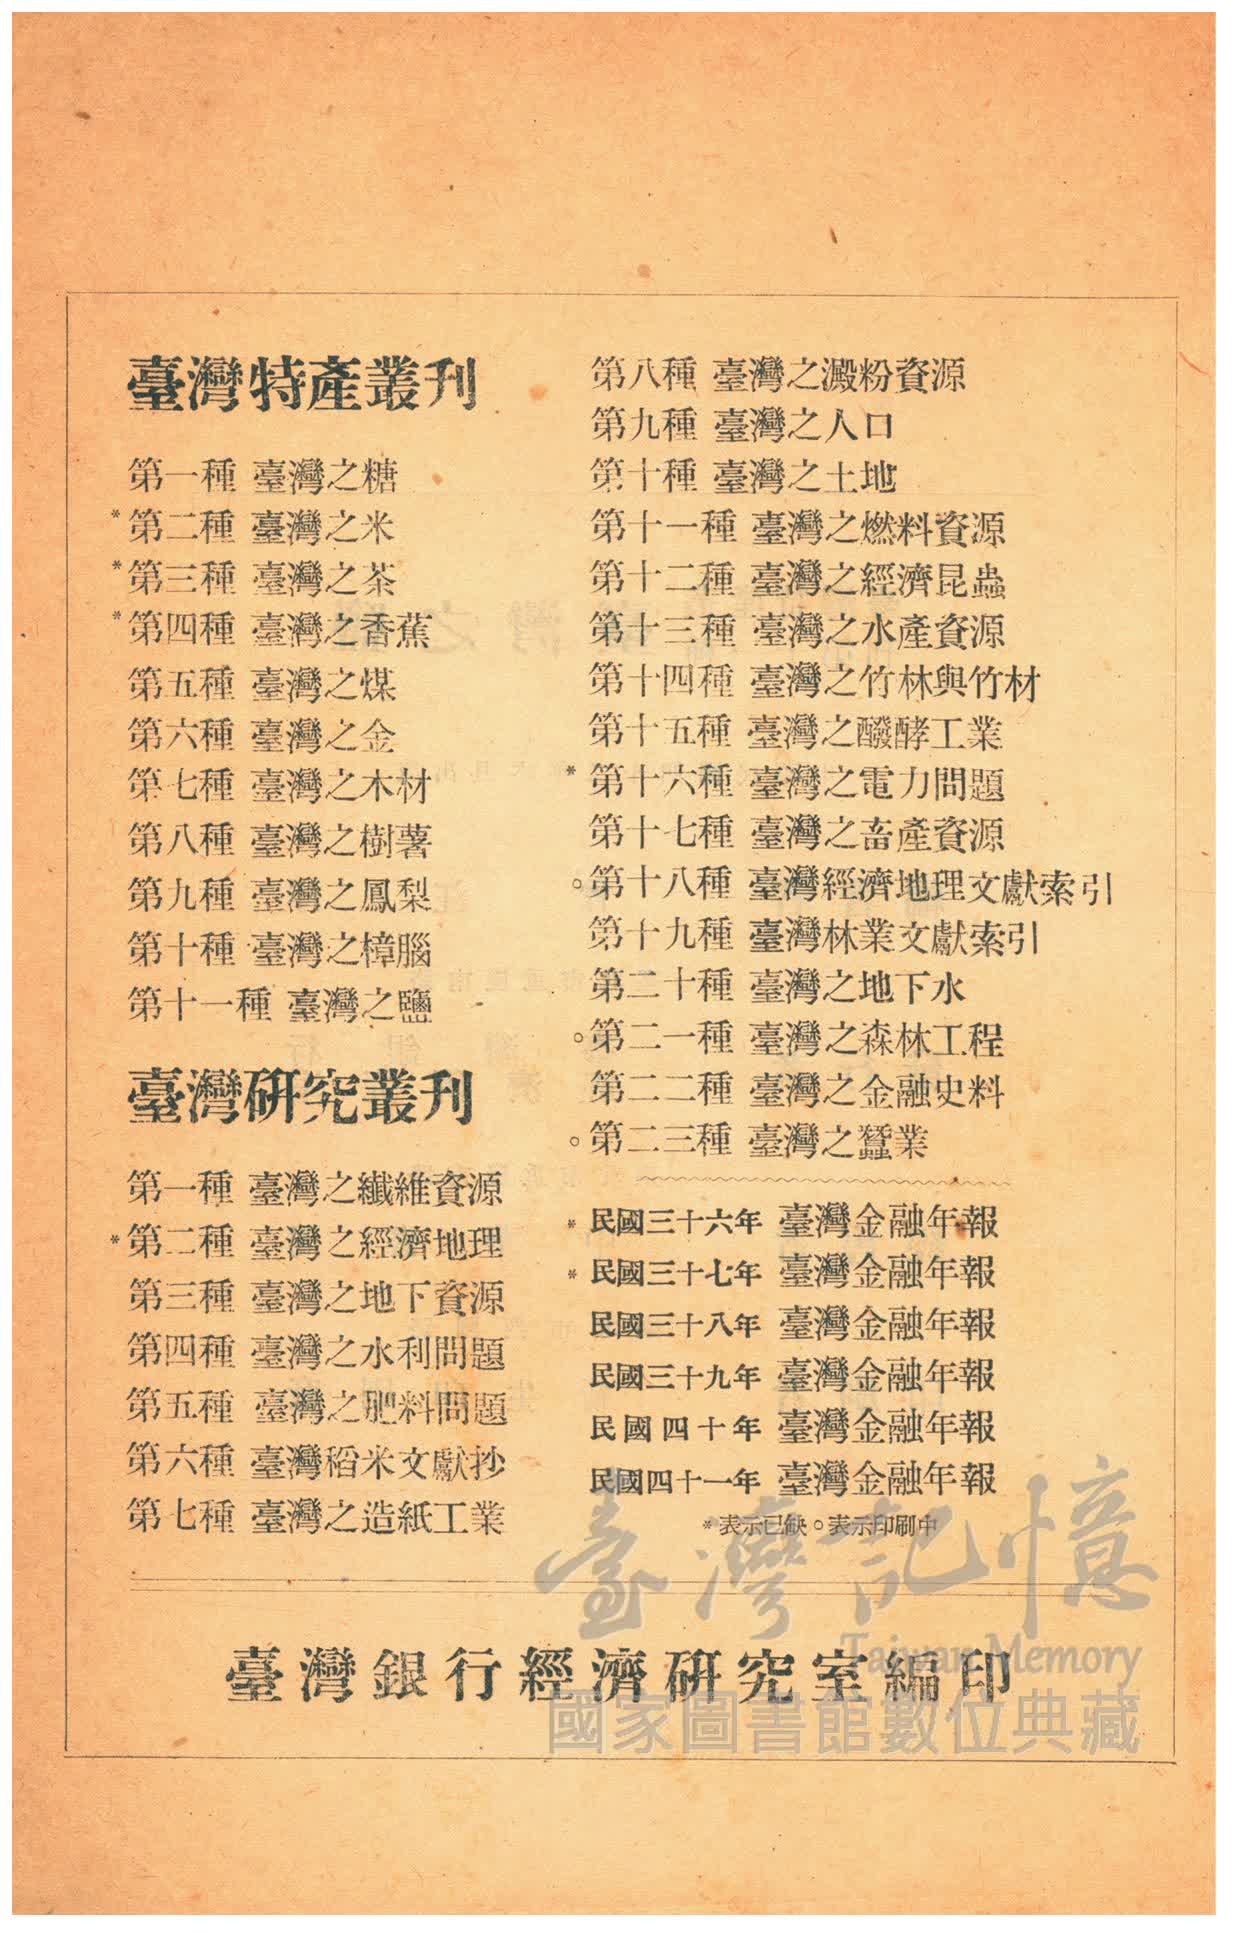 臺灣特產叢刊
第一種 臺灣之糖
*第二種 臺灣之米
*第三種 臺灣之茶
*第四種 臺灣之香蕉
第五種 臺灣之煤
第六種 臺灣之金
第七種 臺灣之木材
第八種 臺灣之樹薯
第九種 臺灣之鳳梨
第十種 臺灣之樟腦
第十一種 臺灣之鹽
臺灣研究叢刊
第一種 臺灣之纖維資源
*第二種 臺灣之經濟地理
第三種 臺灣之地下資源
第四種 臺灣之水利問題
第五種 臺灣之肥料問題
第六種 臺灣稻米文獻抄
第七種 臺灣之造紙工業
第八種 臺灣之澱粉資源
第九種 臺灣之人口
第十種 臺灣之土地
第十一種 臺灣之燃料資源
第十二種 臺灣之經濟昆蟲
第十三種 臺灣之水產資源
第十四種 臺灣之竹林與竹材
第十五種 臺灣之醱酵工業
*第十六種 臺灣之電力問題
第十七種 臺灣之畜產資源
○第十八種 臺灣經濟地理文獻索引
第十九種 臺灣林業文獻索引
第二十種 臺灣之地下水
○第二一種 臺灣之森林工程
第二二種 臺灣之金融史料
○第二三種 臺灣之蠶業
*民國三十六年 臺灣金融年報
*民國三十七年 臺灣金融年報
民國三十八年 臺灣金融年報
民國三十九年 臺灣金融年報
民國四十年 臺灣金融年報
民國四十一年 臺灣金融年報
*表示已缺○表示印刷中
臺灣銀行經濟研究室編印
臺灣記憶
Taiwan Memory
國家圖書館數位典藏